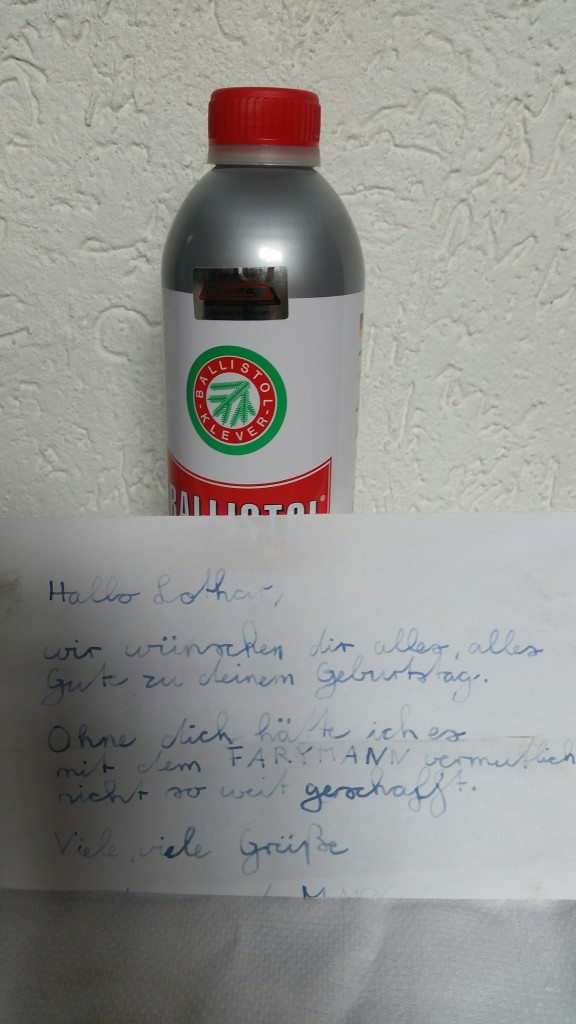 BALLISTOL
KLEVER
BALLISTOL®
Hallo Lothar,
wir wünschen dir alles, alles
Gute zu deinem Geburtstag.
Ohne dich hätte ich es
mit dem FARYMANN vermutlich
nicht so weit geschafft.
Viele, viele Grüße